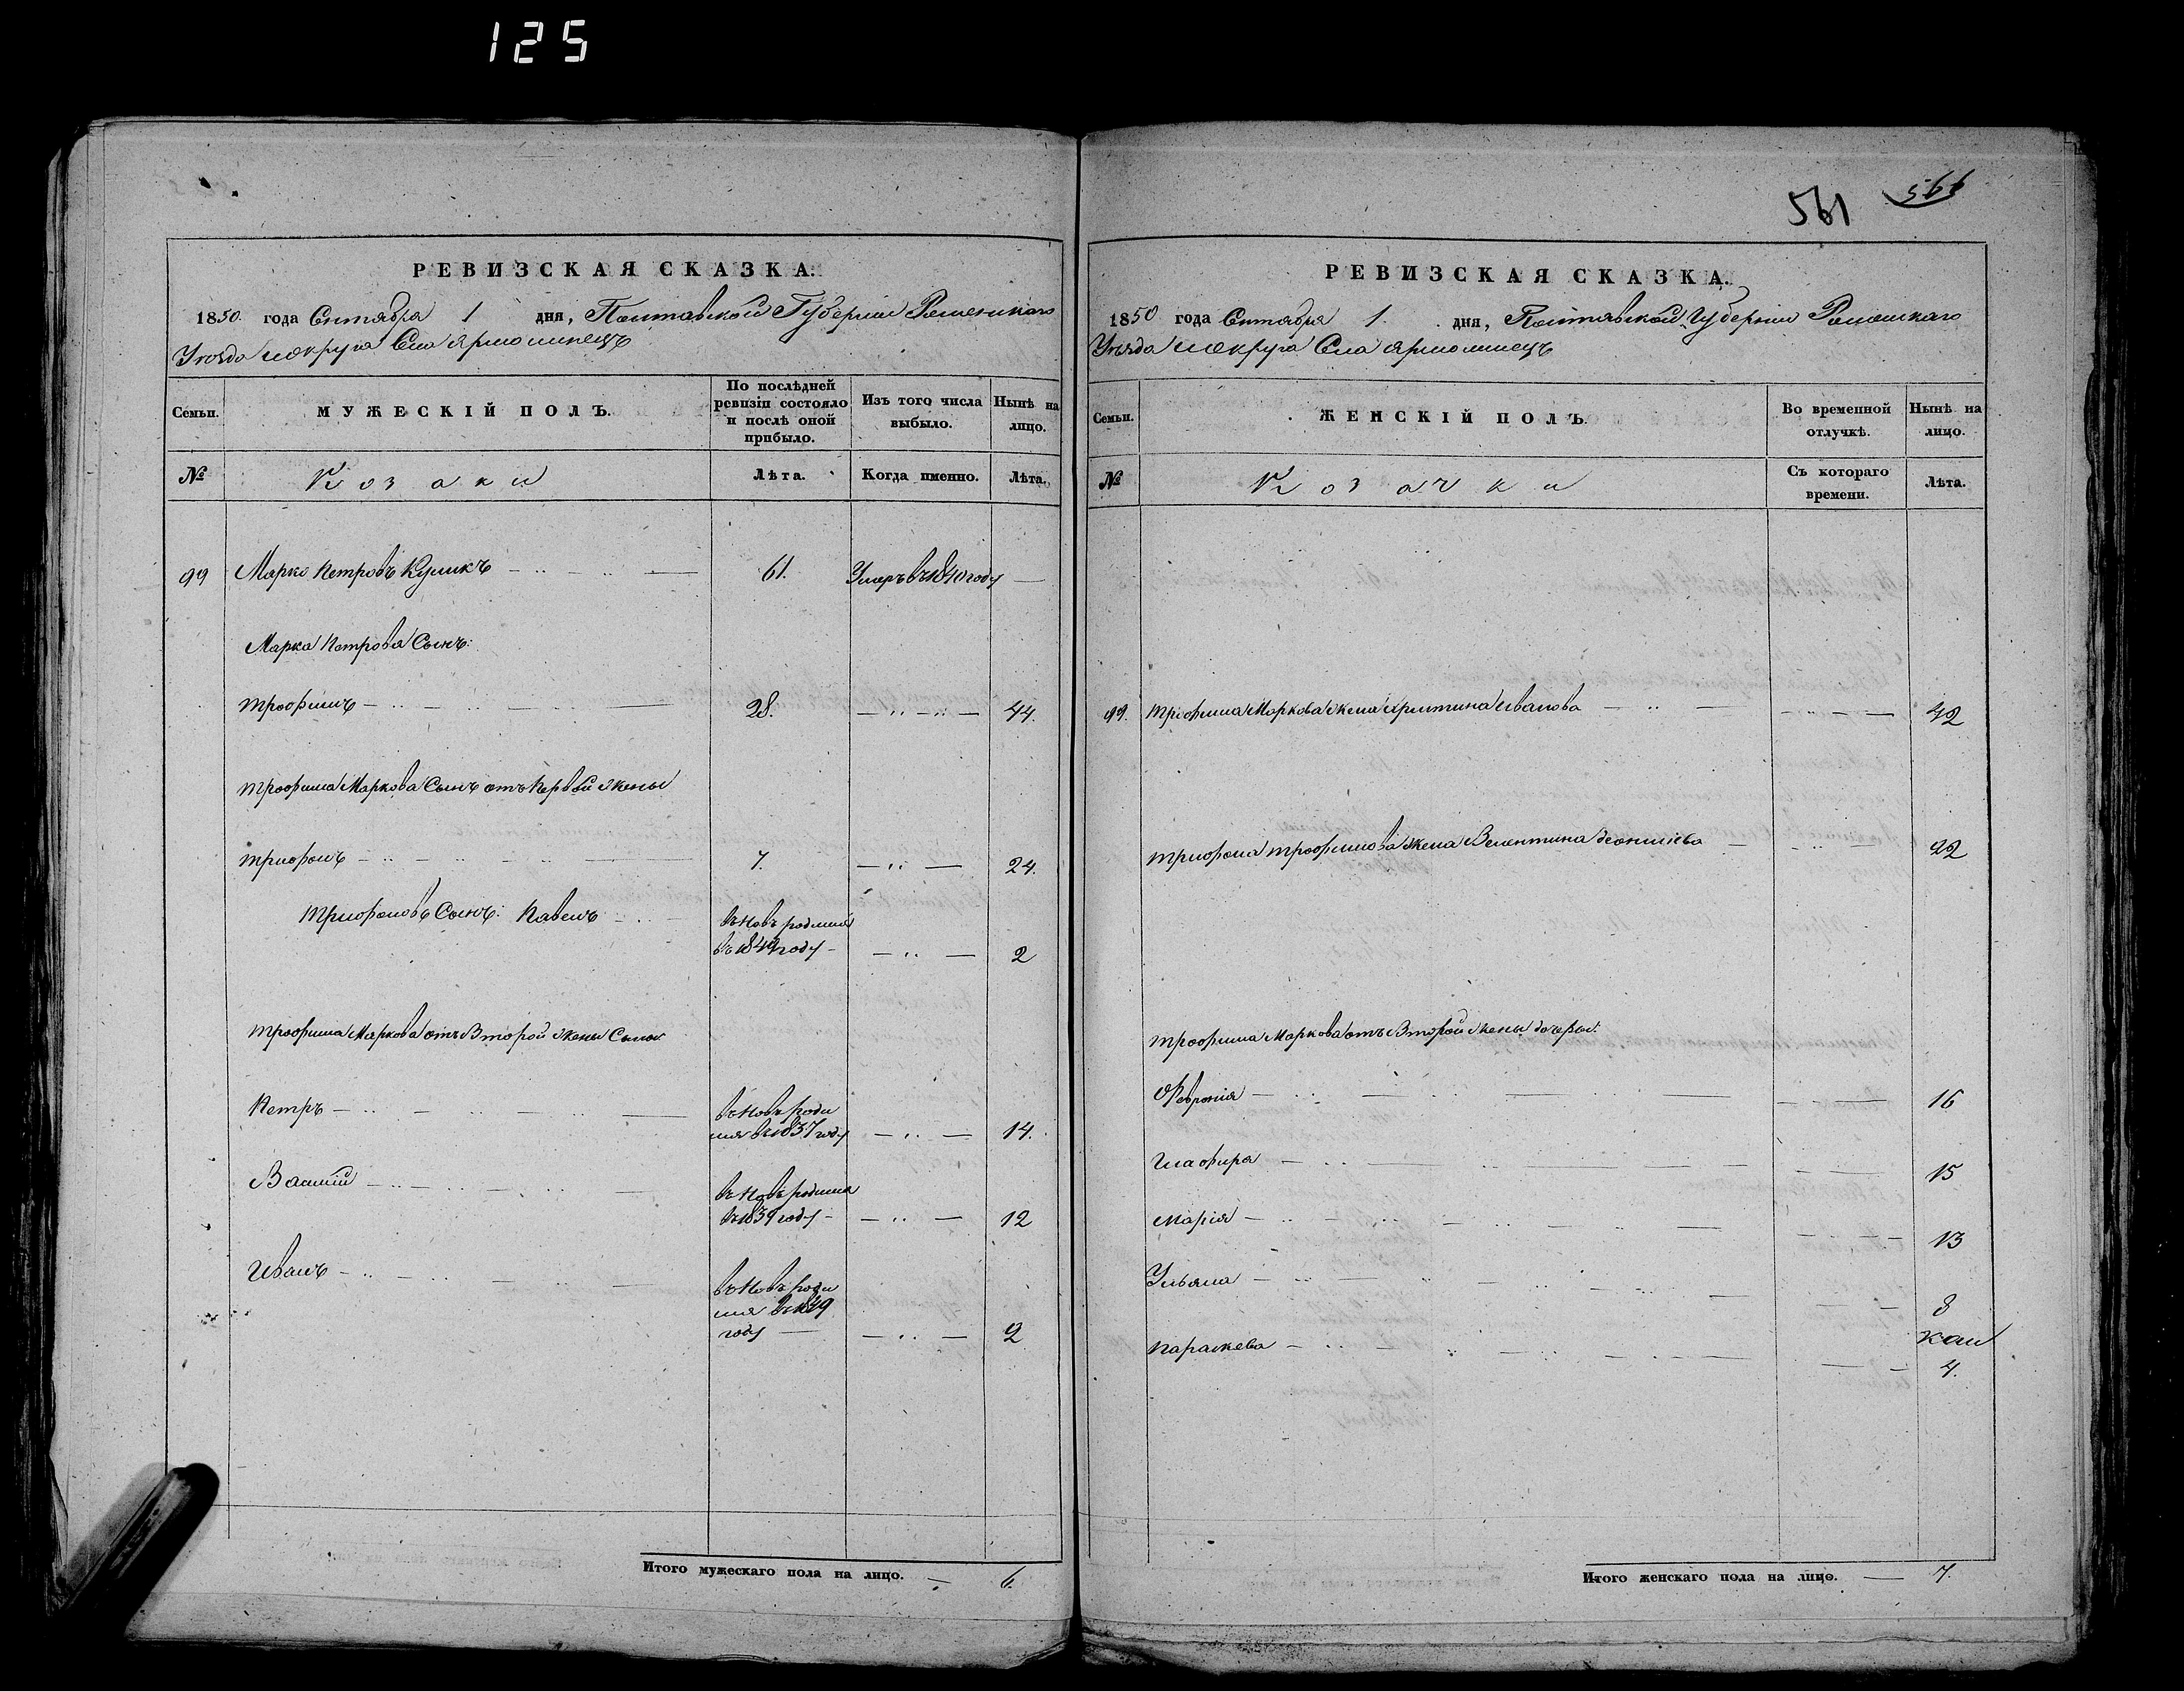 125
561
566
РЕВИЗСКАЯ СКАЗКА.
1850. года Сентября 1 дня, Полтавской Губерніи Роменскаго
Уѣзда и округа Села Ярмолинецъ
Семьи.
МУЖЕСКІЙ ПОЛЪ.
По послѣдней ревизіи состояло и послѣ оной прибыло.
Изъ того числа выбыло.
Нынѣ на лицо.
№
Козаки
Лѣта.
Когда именно.
Лѣта.
99 Марко Петровъ Куликъ 61. Умеръ въ 1840 году
Марка Петрова Сынъ:
Трофимъ 28. 44.
Трофима Маркова Сынъ отъ Первой Жены
Трифонъ 7. 24.
Трифоновъ Сынъ: Павелъ
въновь родился
въ 1849 году 2
Трофима Маркова отъ Второй Жены Сыновья
Петръ
въновь роди
лся въ 1837 году 14.
Василій
въновь родился
въ 1839 году 12
Иванъ
въновь роди
лся въ 1849
году 2
Итого мужескаго пола на лицо. 6.
РЕВИЗСКАЯ СКАЗКА.
1850 года Сентября 1. дня, Полтавской Губерніи Роменскаго
Уѣзда и округа Села Ярмолинецъ
Семьи.
ЖЕНСКІЙ ПОЛЪ.
Во временной отлучкѣ.
Нынѣ на лицо.
№
Козачки
Съ котораго времени.
Лѣта.
99. Трофима Маркова Жена Христина Иванова 42
Трифона Трофимова Жена Валентина Деонисіева 22
Трофима Маркова отъ Второй Жены дочери:
Февронія 16
Глафира 15
Марія 13
Ульяна 8
Параскева 4.
Итого женскаго пола на лицо. 7.